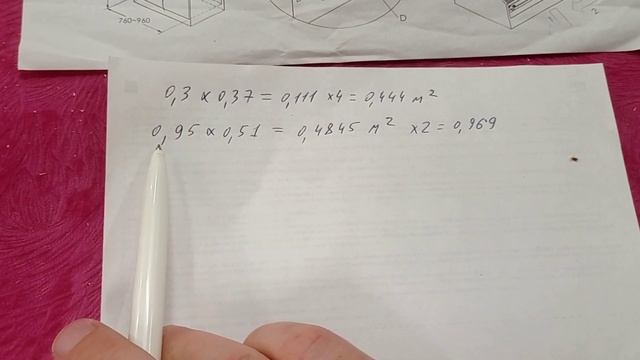 760~960
D
2
0,3 x 0,37 = 0,111 x4 = 0,444 м²
0,95 x 0,51 = 0,4845 м² x2 = 0,969